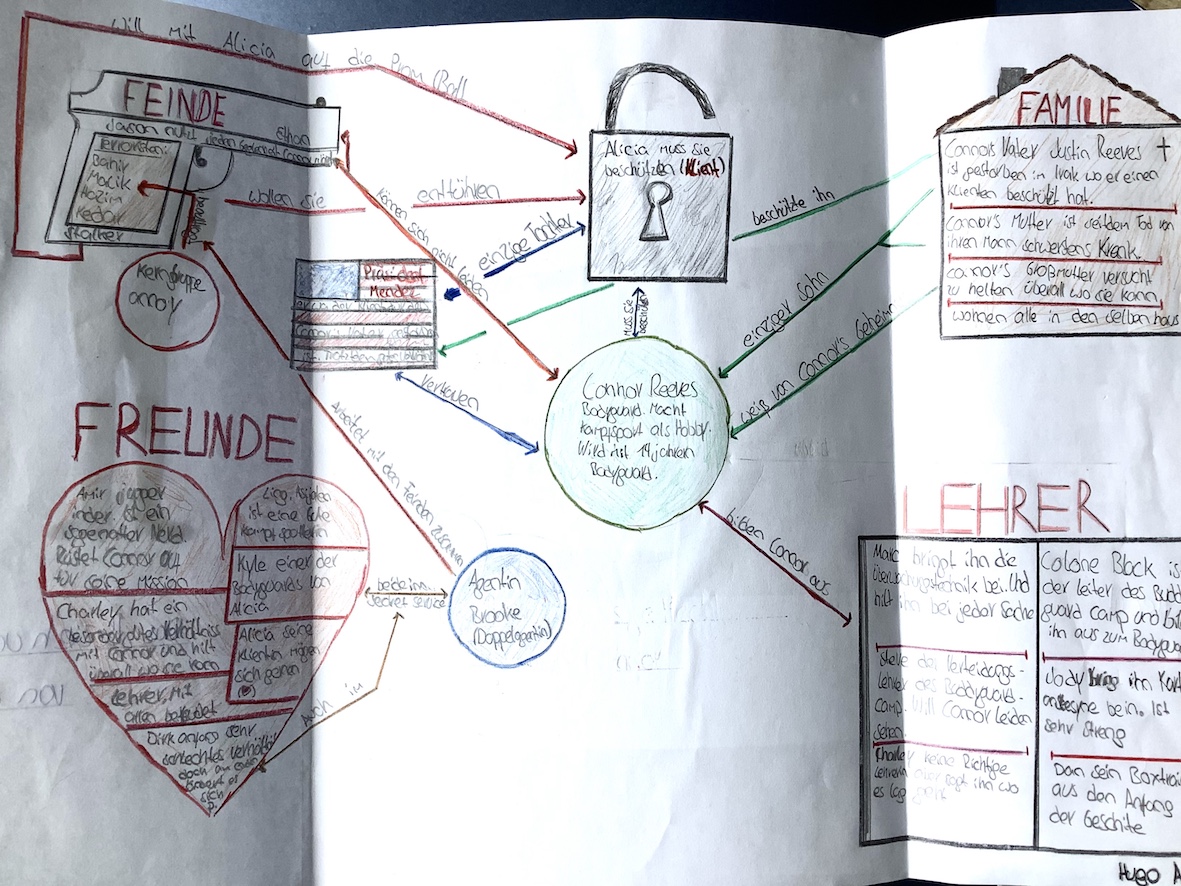 Will mit Alicia auf die Prom (Ball
FEINDE
Jason nutzt jeden
Ethan
Terroristen:
Bahir
Malik
Hazim
Kedar
Stalker
Kerngruppe
benutzen
wollen sie entführen
können sich nicht leiden
einzige Tochter
Präsident
Mendez
Connor's Vater
vertrauen
Alicia muss sie
beschützen (Klient)
muss sie
beschützen
beschützte ihn
einziger Sohn
weiß von Connor's Geheimn
FAMILIE
Connors Vater Justin Reeves †
ist gestorben im Irak wo er einen
Klienten beschützt hat.
Connor's Mutter ist seitdem Tod von
ihren Mann schwerstens Krank.
Connor's Großmutter versucht
zu helfen überall wo sie kann
wohnen alle in den selben haus
Connor Reeves
Bodyguard. Macht
Kampfsport als Hobby.
Wird mit 14 jahren
Bodyguard.
FREUNDE
Amir
inder. Ist ein
Nerd.
Rüstet Connor auf
für seine Mission
Ling,
ist eine gute
Kampfsportlerin
Kyle einer der
Bodyguards von
Alicia
Charley hat ein
besonder gutes Verhältniss
mit Connor und hilft
überall wo sie kann
Alicia seine
Klientin mögen
sich gerne
(♥)
Lehrer. Mit
allen befreundet
Dirk anfangs sehr
schlechtes Verhältniss
doch am
es
sich
Arbeitet mit den Feinden zusammen
beide im
secret service
Auch im
Agentin
Brooke
(Doppelagentin)
bilden Connor aus
LEHRER
Marc bringt ihn die
überwachungstechnik bei. Und
hilft ihn bei jeder Sache
Steve der Verteidungs-
Lehrer des Buddyguard-
camp. Will Connor leiden
sehen.
Charley keine Richtige
Lehrerin aber sagt ihn wo
es lag
Colone Black is
der leiter des Budd
guard camp und bild
ihn aus zum Bodygua
Jody bring ihn
bein. Ist
sehr streng
Dan sein Boxtrai
aus den Anfang
der Geschite
Hugo A